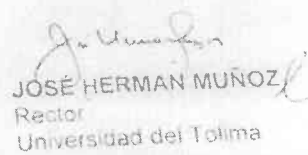 JOSÉ HERMAN MUÑOZ
Rector
Universidad del Tolima